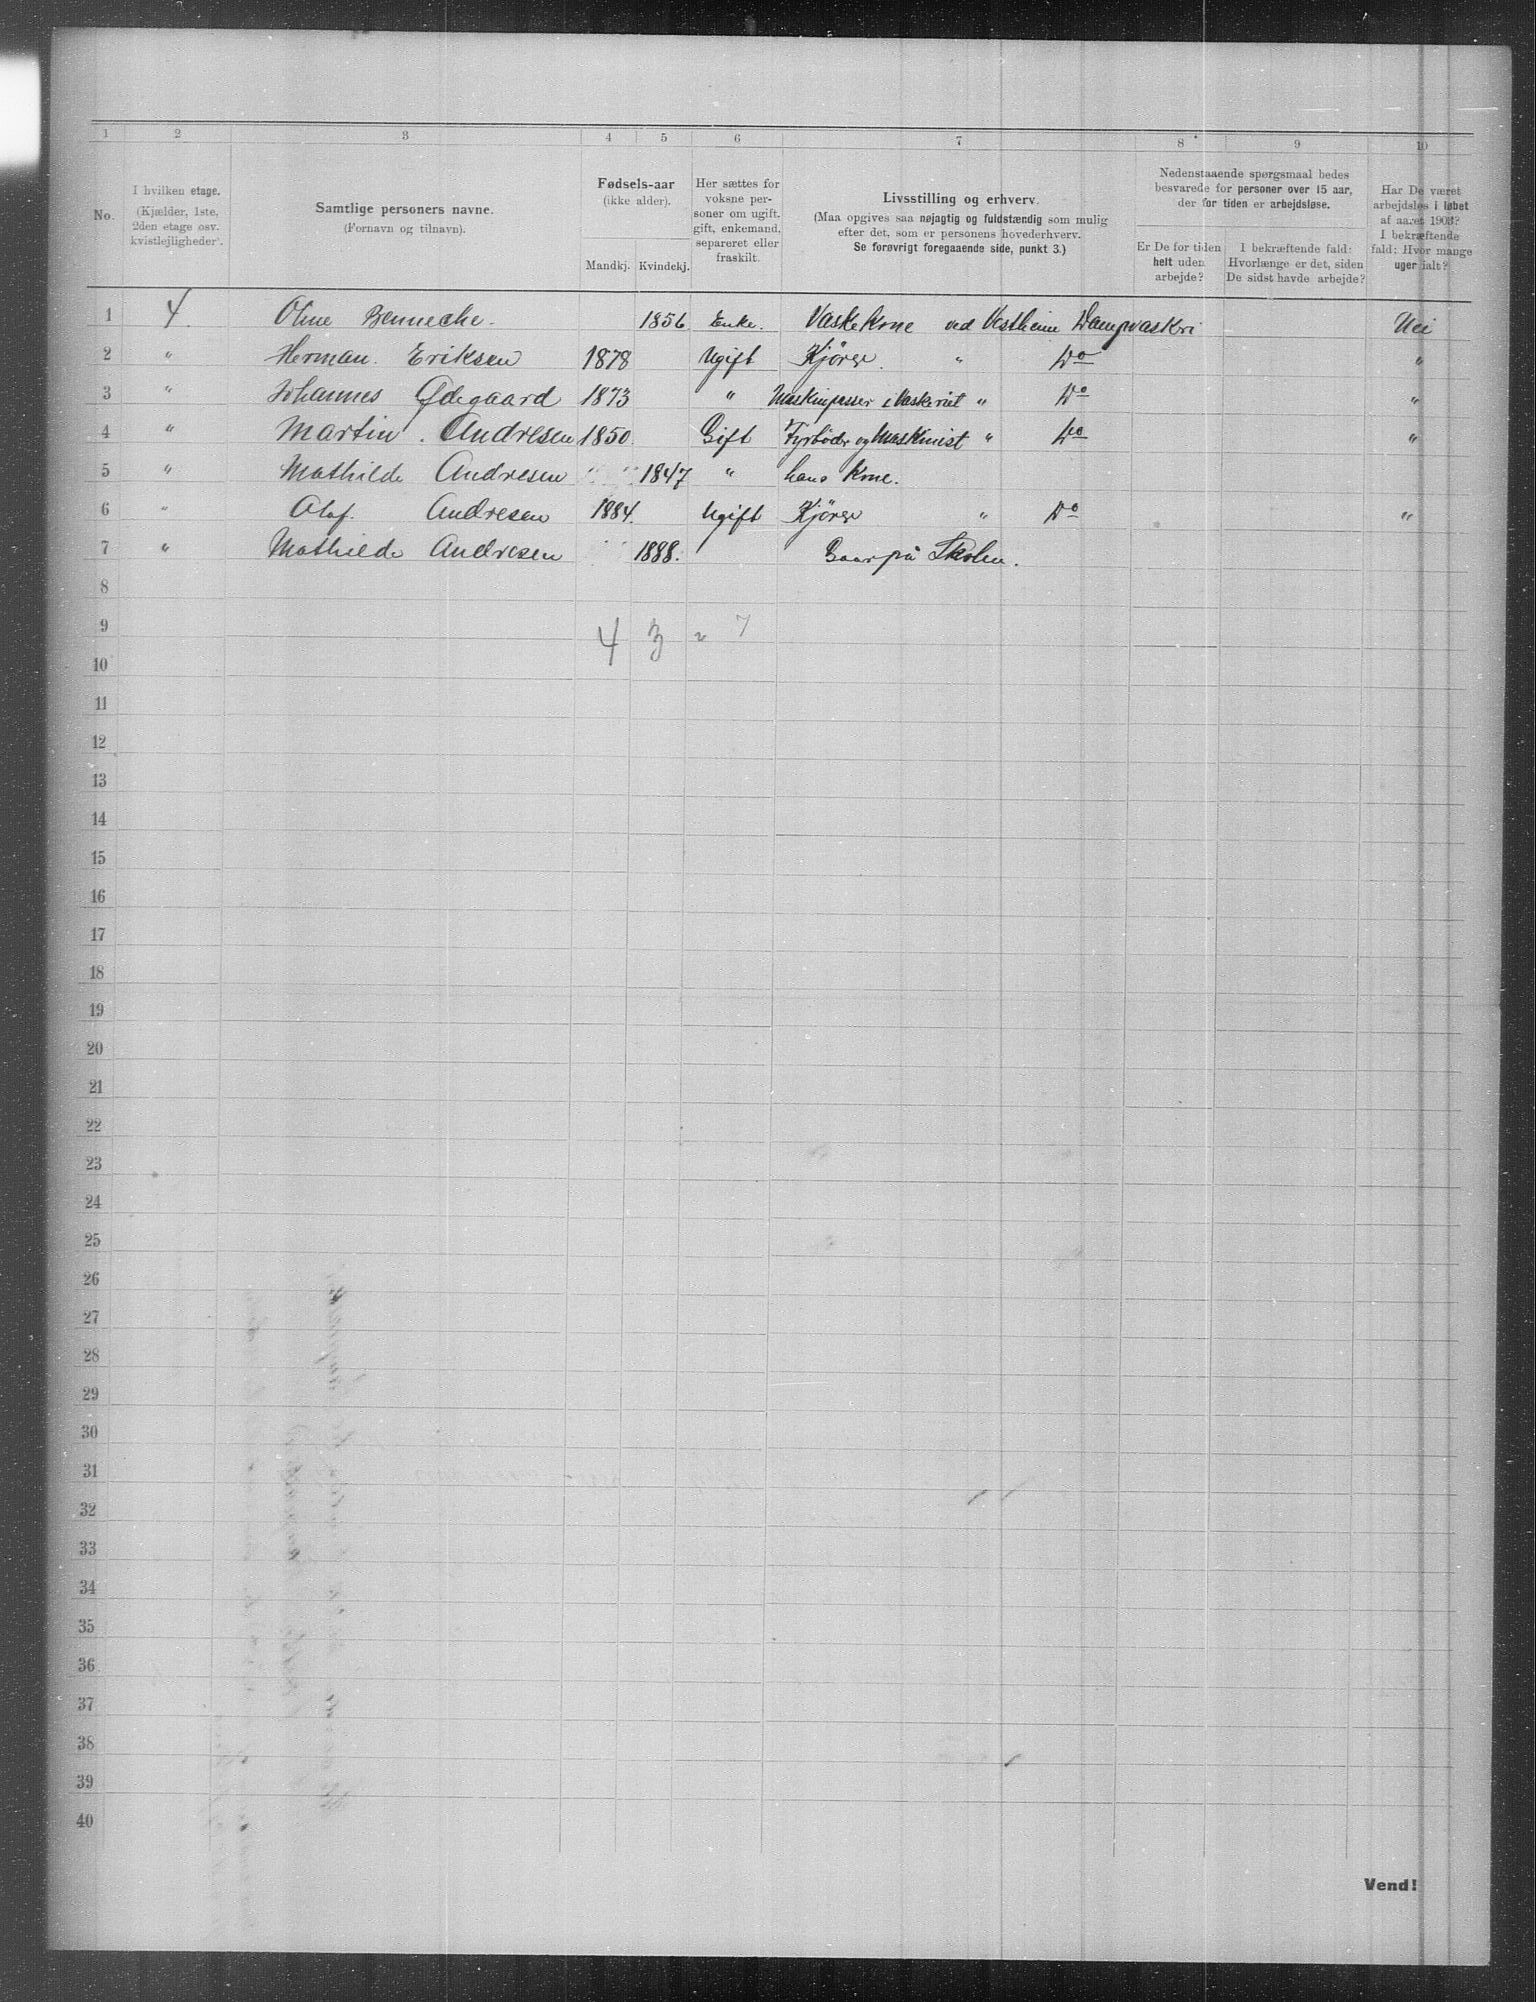 1 2 3 4 5 6 7 8 9 10
No.
I hvilken etage.
(Kjælder, 1ste,
2den etage osv.
kvistlejligheder).
Samtlige personers navne.
(Fornavn og tilnavn).
Fødsels-aar
(ikke alder).
Mandkj. Kvindekj.
Her sættes for
voksne per-
soner om ugift,
gift, enkemand,
separeret eller
fraskilt.
Livsstilling og erhverv.
(Maa opgives saa nøjagtig og fuldstændig som mulig
efter det, som er personens hovederhverv.
Se forøvrigt foregaaende side, punkt 3.)
Nedenstaaende spørgsmaal bedes
besvarede for personer over 15 aar,
der for tiden er arbejdsløse.
Er De for tiden
helt uden
arbejde?
I bekræftende fald:
Hvorlænge er det, siden
De sidst havde arbejde?
Har De været
arbejdsløs i løbet
af aaret 1903?
I bekræftende
fald: Hvor mange
uger ialt?
1 4. Oline Bennecke. 1856 Enke. Vaskekone ved Vestheim Dampvaskri Nei
2 " Herman. Eriksen 1878 Ugift Kjører. " Do "
3 " Johannes Ødegaard 1873 " Maskinpasser i Vaskeriet " Do "
4 " Martin. Andresen 1850. Gift Fyrbøder og Maskinist " Do "
5 " Mathilde Andresen " " 1847 " hans Kone.
6 " Olaf. Andresen 1884. Ugift Kjører " Do "
7 " Mathilde Andresen " " 1888. Gaar på Skolen.
8
9 4 3 " 7
10
11
12
13
14
15
16
17
18
19
20
21
22
23
24
25
26
27
28
29
30
31
32
33
34
35
36
37
38
39
40
Vend!